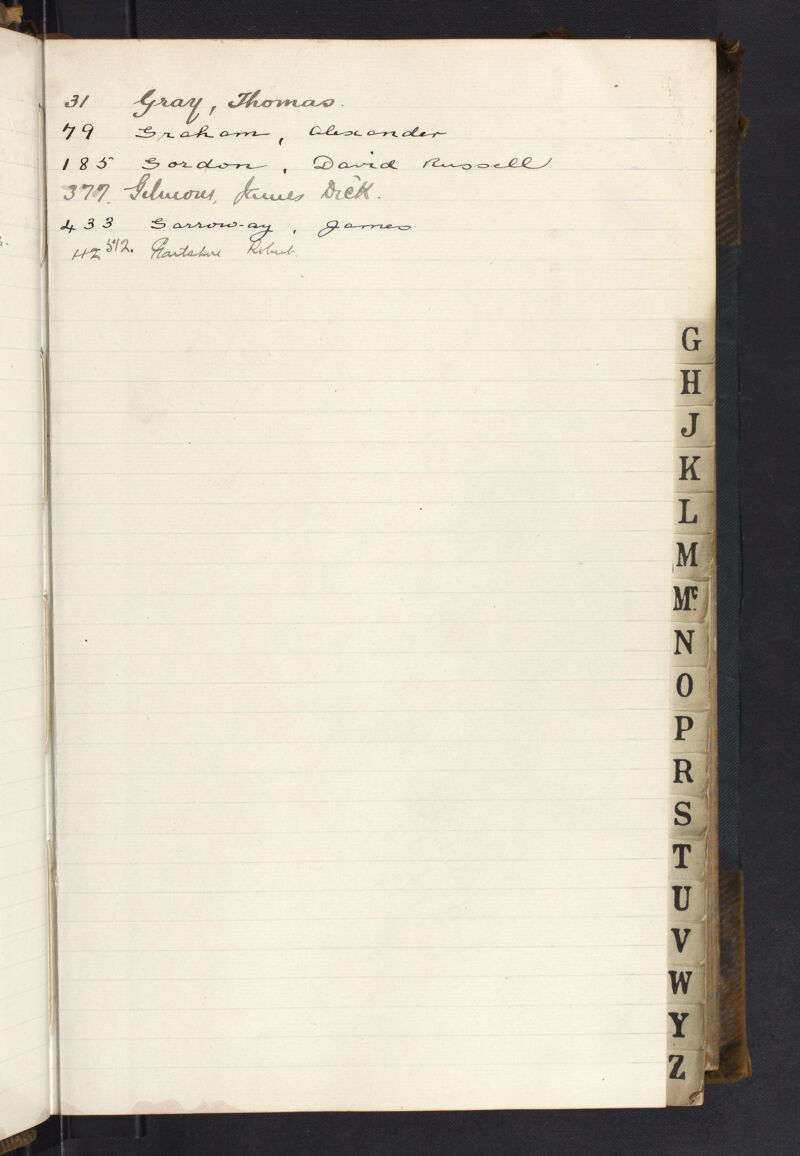 31 Gray, Thomas.
79 Graham, Alexander
185 Gordon, David Russell
377. Gilmour, James Dick.
433 Garroway, James
542. Gartshore Robert.
G
H
J
K
L
M
Mc
N
O
P
R
S
T
U
V
W
Y
Z